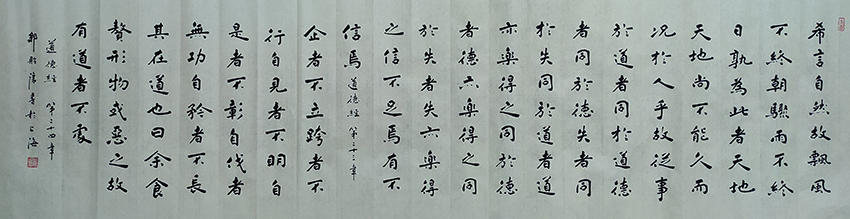 希言自然故飄風
不終朝驟雨不終
日孰為此者天地
天地尚不能久而
况於人乎故從事
於道者同於道德
者同於德失者同
於失同於道者道
亦樂得之同於德
者德亦樂得之同
於失者失亦樂得
之信不足焉有不
信焉 道德經第二十三章
企者不立跨者不
行自見者不明自
是者不彰自伐者
無功自矜者不長
其在道也曰余食
贅形物或惡之故
有道者不處
道德經 第二十四章
書於上海